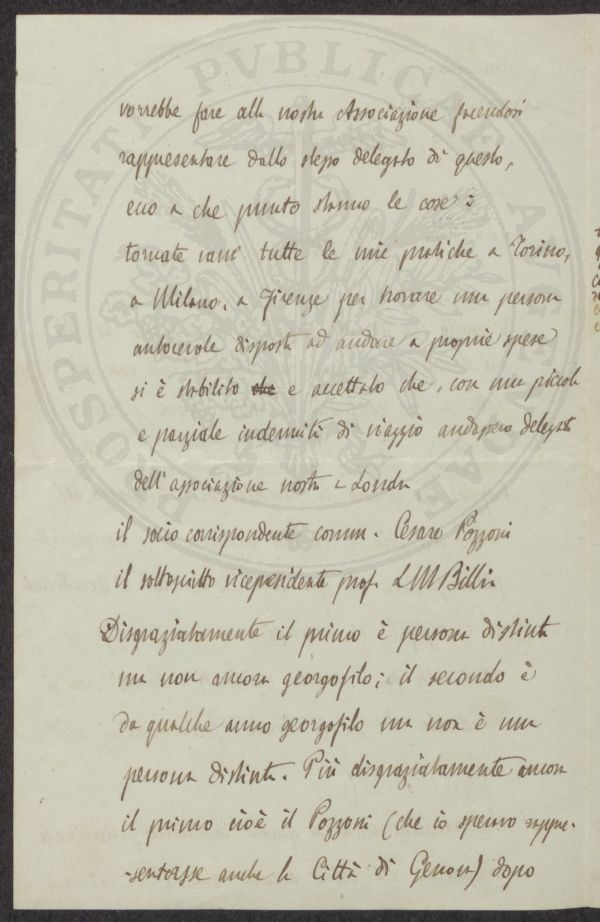 PROSPERITATI PVBLICAE AVGENDAE
vorrebbe fare alla nostra Associazione facendosi
rappresentare dallo stesso delegato di questo,
ecco a che punto stanno le cose:
tornate vane tutte le mie pratiche a Torino,
a Milano, a Firenze per trovare una persona
autorevole disposta ad andare a proprie spese
si è stabilito che e accettato che, con una piccola
e parziale indennità di viaggio andassero delegati
dell'associazione nostra a Londra
il socio corrispondente comm. Cesare Pozzoni
il sottoscritto vicepresidente prof. L M Billia
Disgraziatamente il primo è persona distinta
ma non ancora georgofilo; il secondo è
da qualche anno georgofilo ma non è una
persona distinta. Più disgraziatamente ancora
il primo cioè il Pozzoni (che io speravo rappre-
-sentasse anche la Città di Genova) dopo